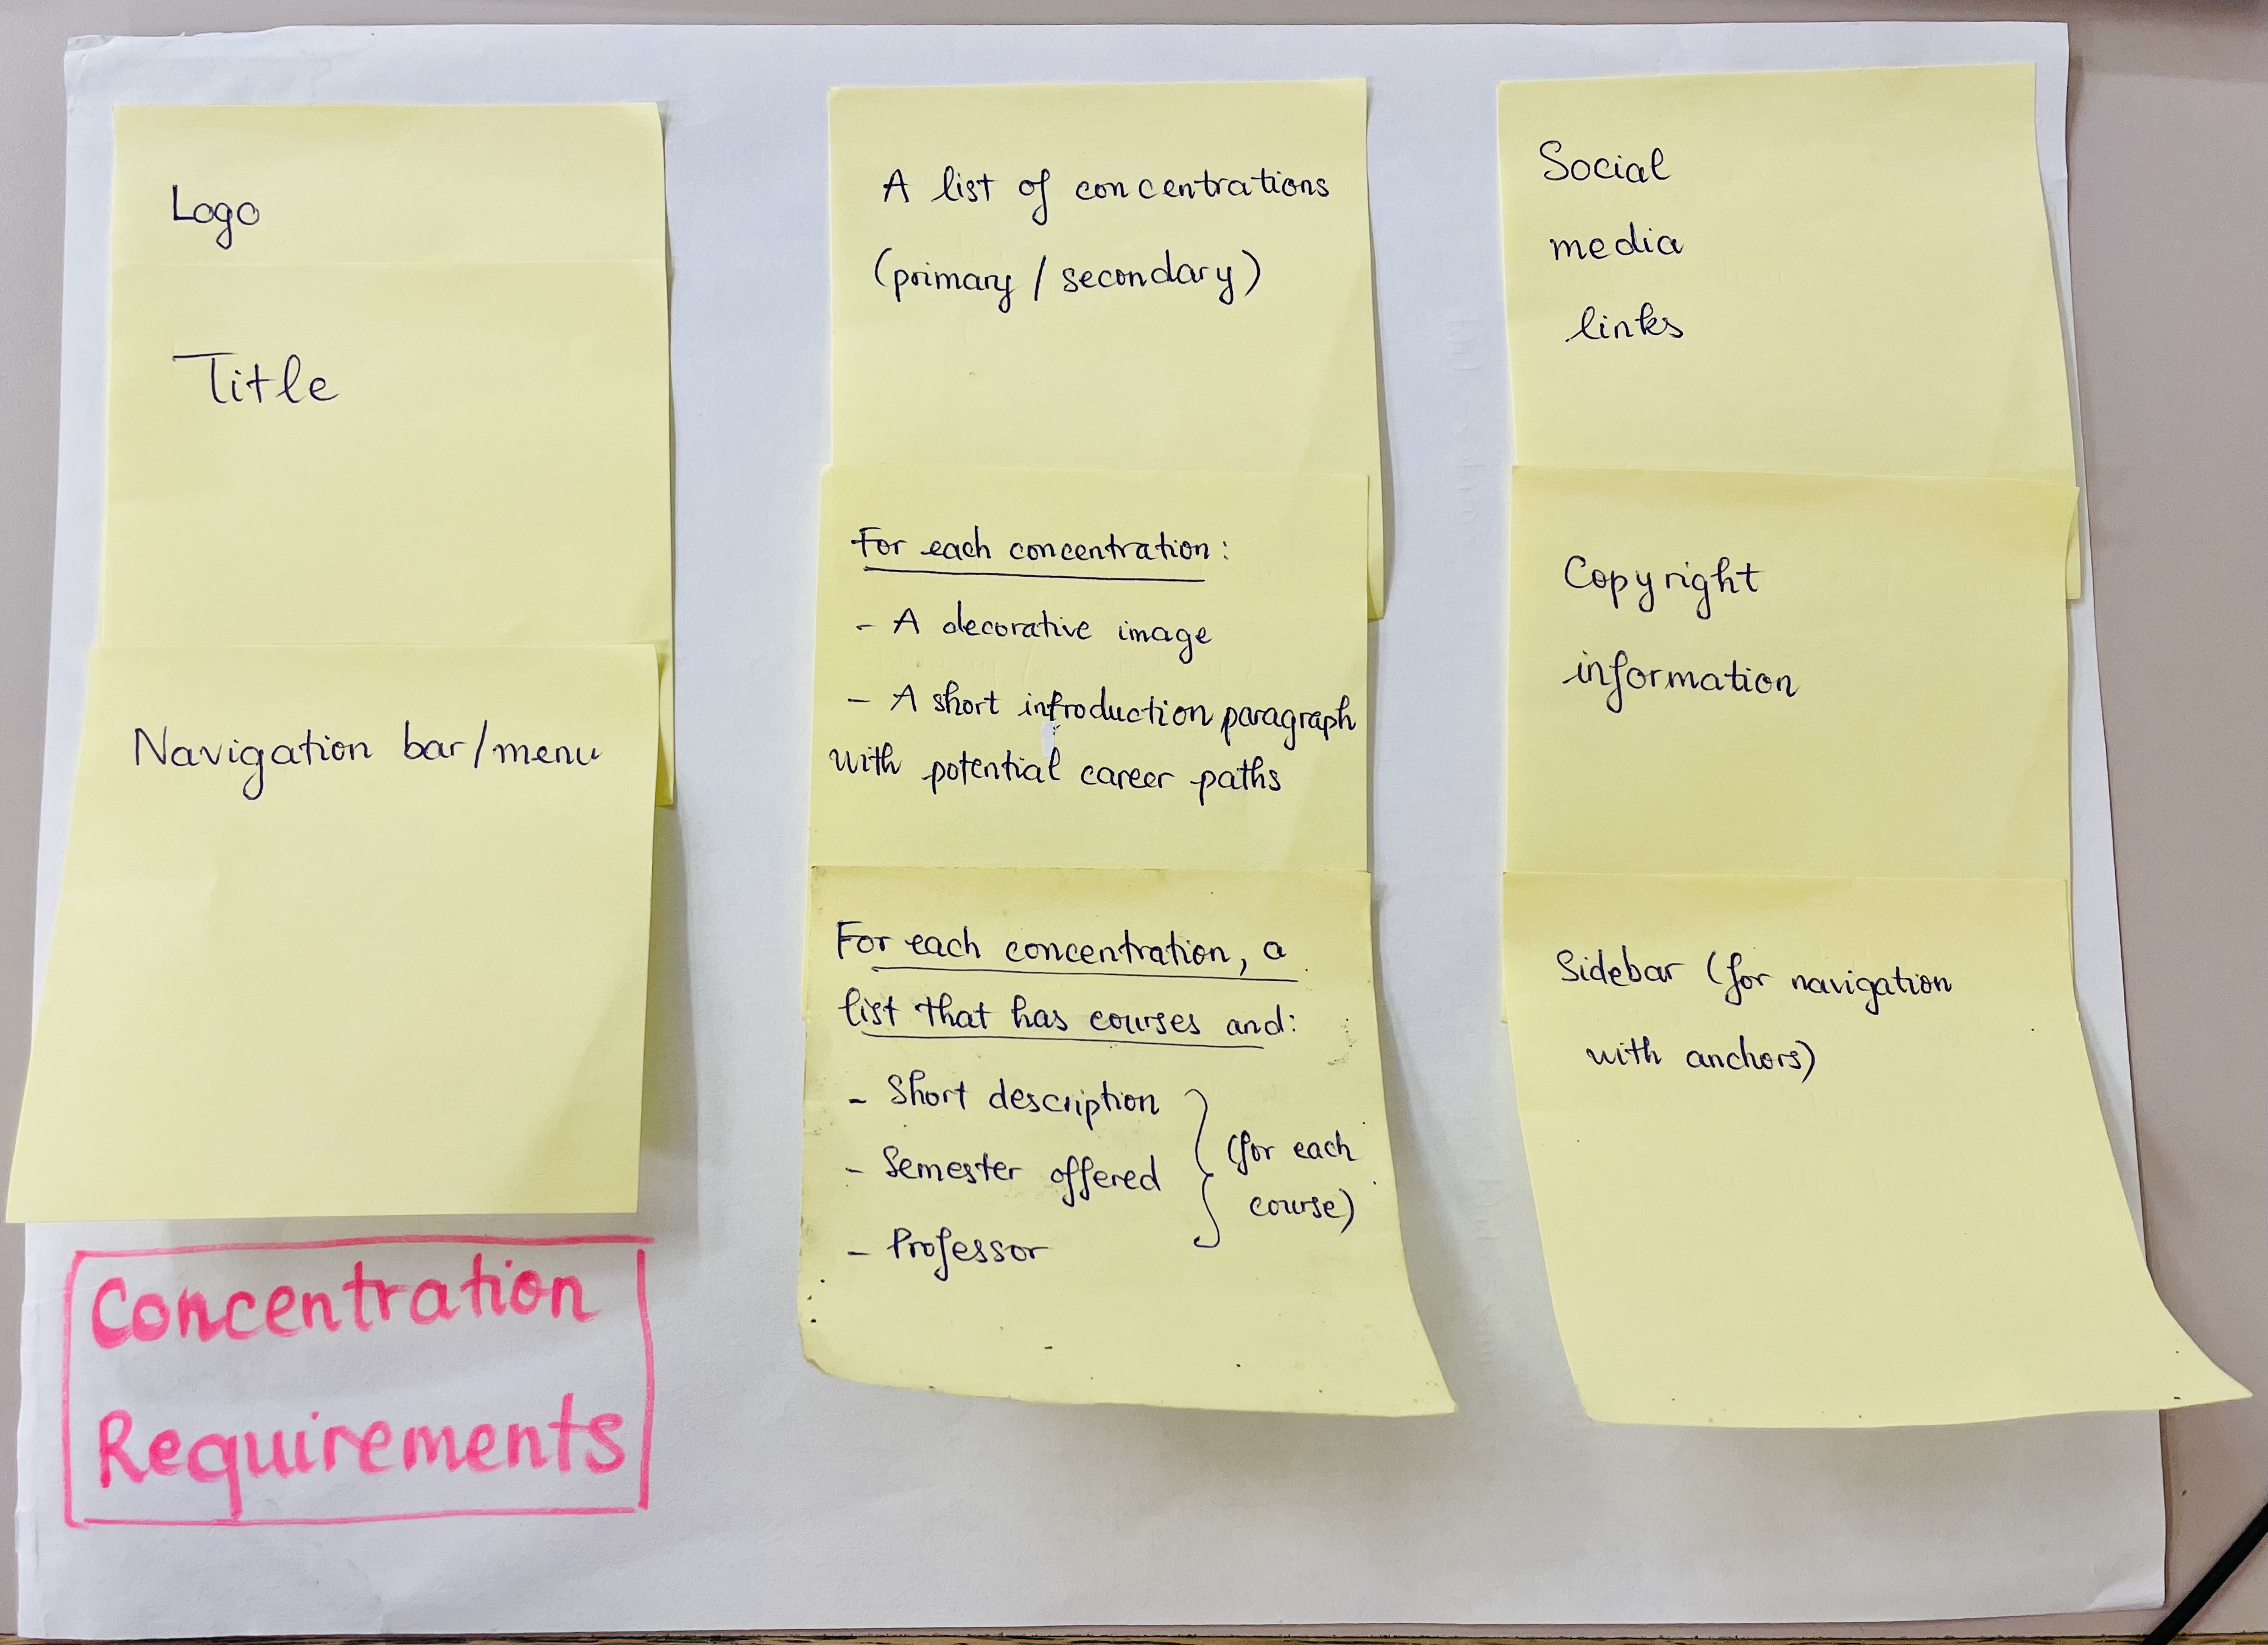 Logo
Title
Navigation bar/menu
Concentration
Requirements
A list of concentrations
(primary / secondary)
For each concentration:
- A decorative image
- A short introduction paragraph
with potential career paths
For each concentration, a
list that has courses and:
- Short description
- Semester offered
- Professor
(for each
course)
Social
media
links
Copyright
information
Sidebar (for navigation
with anchors)